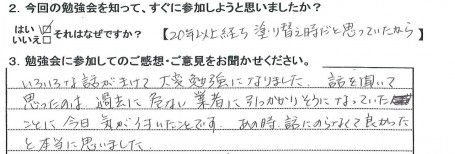 2. 今回の勉強会を知って、すぐに参加しようと思いましたか？
はい ☑
いいえ □ それはなぜですか？ 【20年以上経ち塗り替え時だと思っていたから】
3. 勉強会に参加してのご感想・ご意見をお聞かせください。
いろいろな話がきけて大変勉強になりました。話を聞いて
思ったのは、過去に危ない業者に引っかかりそうになっていた
ことに今日気が付いたことです。あの時、話にのらなくて良かった
と本当に思いました